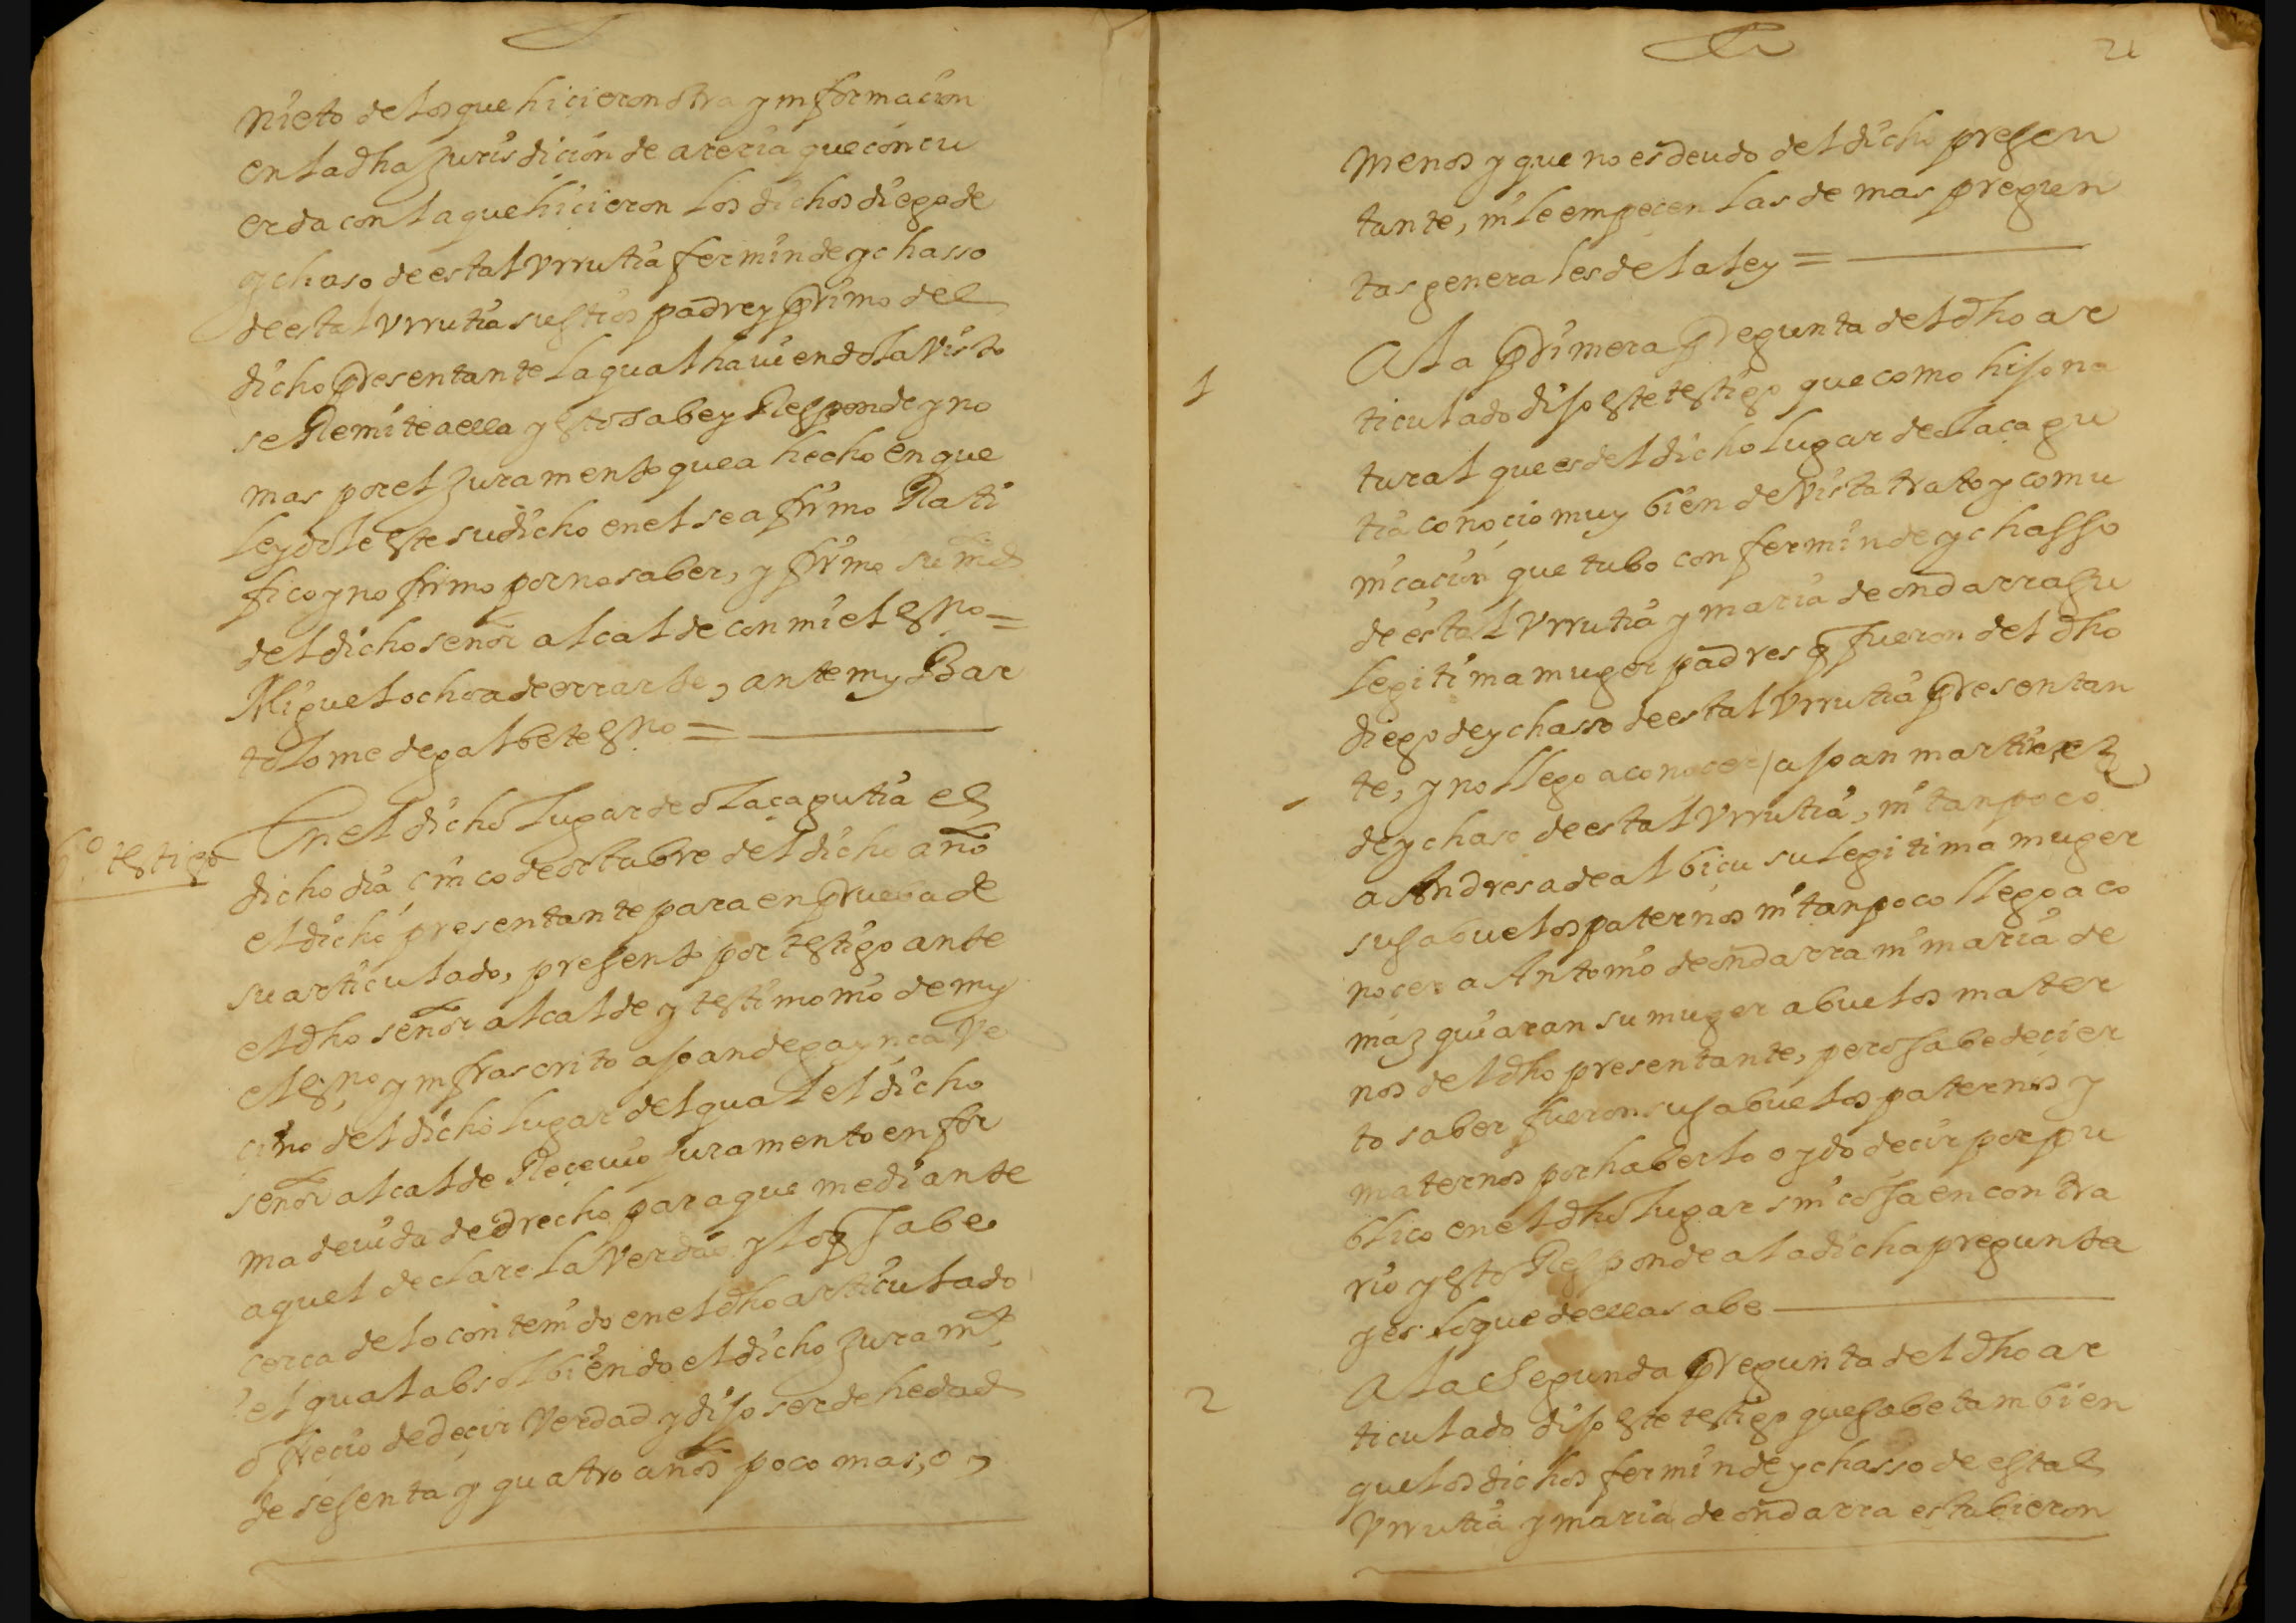 nieto de los que hicieron otra ynformacion
en la dha Jurisdicion de areria que concu
erda con la que hicieron los dichos diego de
ychaso de estal Vrrutia fermin de ychasso
de estal Vrrutia sus tios padre y primo del
dicho presentante la qual haviendola Visto
se Remite a ella y esto sabe y Responde y no
mas por el Juramento que a hecho en que
leydole este su dicho en el se afirmo Rati
fico y no firmo por no saber, y firmo su md
del dicho señor alcalde con mi el essno =
Miguel ochoa de errarte, ante my Bar
tolome de galbete essno =
6º testigo
En el dicho lugar de olaçagutia el
dicho dia çinco de octubre del dicho año
el dicho presentante para en prueba de
su articulado, presento por testigo ante
el dho señor alcalde y testimonio de my
el essno ynfrascrito a joan de gaynça Ve
cino del dicho lugar del qual el dicho
señor alcalde Reçeuio juramento en for
ma deuida de drecho para que mediante
aquel declare la Verdad y lo q sabe
cerca de lo contenido en el dho articulado
el qual absolbiendo el dicho Juramto
ofrecio de deçir Verdad y dijo ser de hedad
de sesenta y quatro años poco mas, o
21
menos y que no es deudo del dicho presen
tante, ni le empeçen las de mas pregun
tas generales de la ley =
1
A la primera pregunta del dho ar
ticulado dijo este testigo que como hijo na
tural que es del dicho lugar de olaçagu
tia conoçio muy bien de Vista trato y comu
nicaçion que tubo con fermin de ychasso
de estal Vrrutia y maria de ondarra su
legitima muger padres q fueron del dho
diego de ychasso de estal Vrrutia presentan
te, y no llego a conocer / a joan martinez
de ychaso de estal Vrrutia, ni tanpoco
a Andresa de albiçu su legitima muger
sus abuelos paternos ni tanpoco llego a co
noçer a Antonio de ondarra ni maria de
mazquiaran su muger abuelos mater
nos del dho presentante, pero sabe de çier
to saber fueron sus abuelos paternos y
maternos por haberlo oydo decir por pu
blico en el dho lugar sin cosa en contra
rio y esto Responde a la dicha pregunta
y es lo que de ella sabe
2
A la segunda pregunta del dho ar
ticulado dijo este testigo que sabe tambien
que los dichos fermin de ychasso de estal
Vrrutia y maria de ondarra estubieron